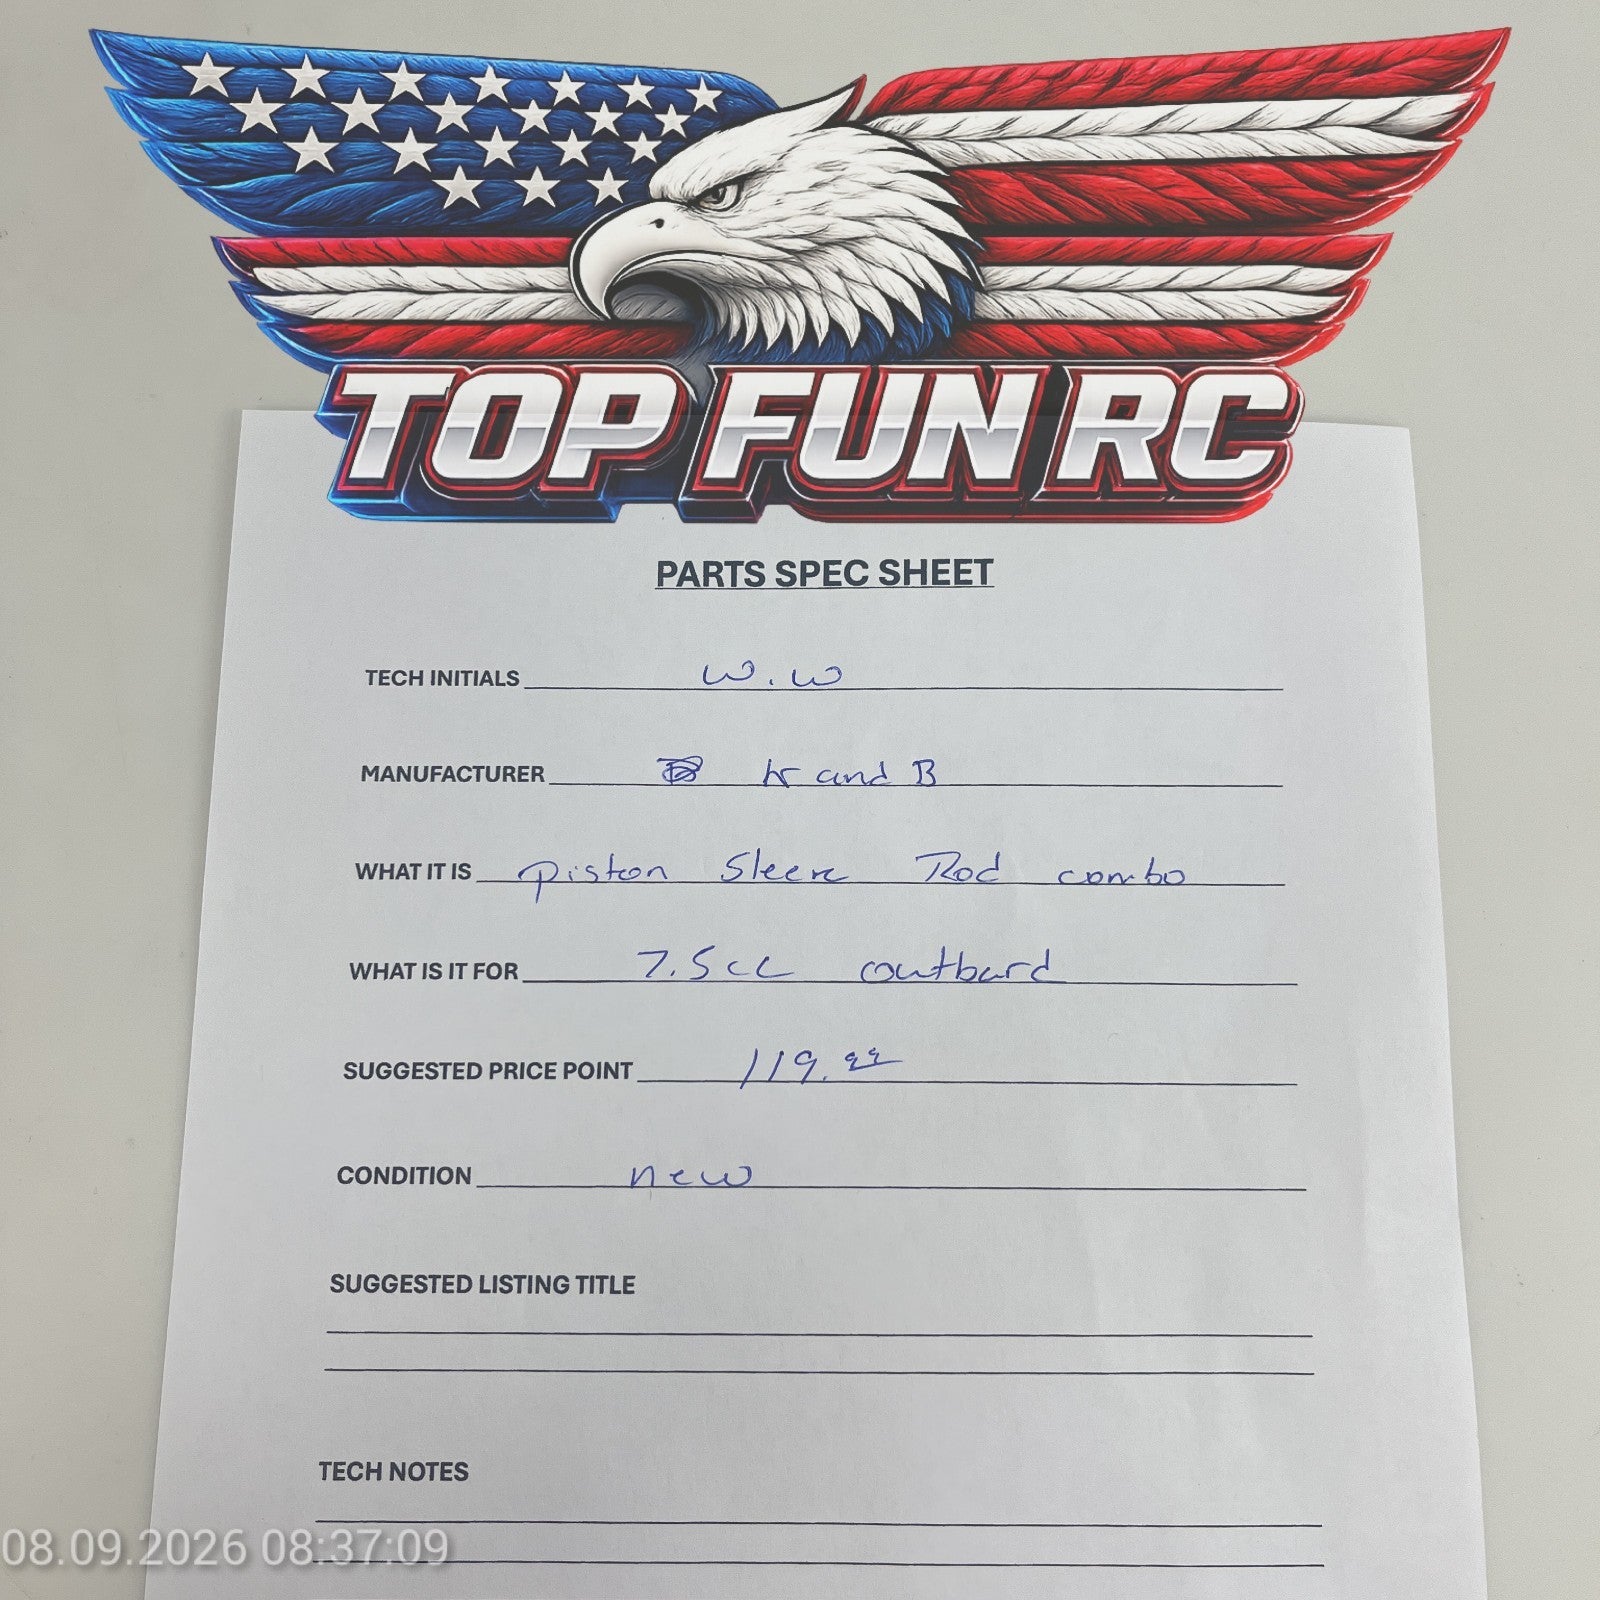 TOP FUN RC
PARTS SPEC SHEET
TECH INITIALS W.W
MANUFACTURER and B
WHAT IT IS piston Sleeve Rod combo
WHAT IS IT FOR 7.5cc outbard
SUGGESTED PRICE POINT 119.99
CONDITION new
SUGGESTED LISTING TITLE
TECH NOTES
08.09.2026 08:37:09